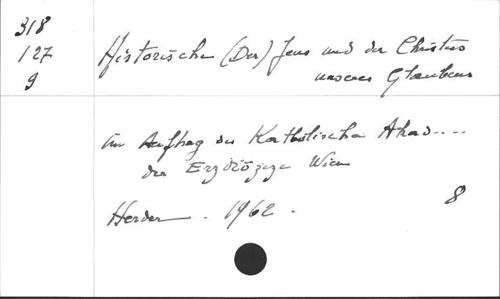 318
127
9
Historische (Der) Jesus und der Christus
unseres Glaubens
im Auftrag der Katholischen Akad....
der Erzdiözese Wien
Herder . 1962 .
8